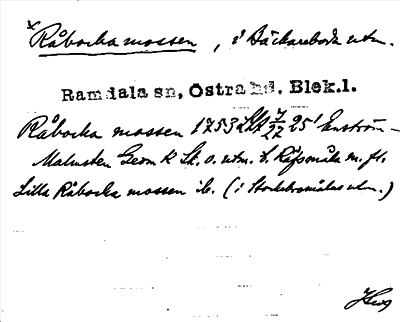 x Råbocka mossen, i Bäckareboda utm.
Ramdala sn, Östra hd. Blek.l.
Råbocka mossen 1753 7/22 25' Enström-
Malmsten Geom K Sk. o. utm. t. Räfsmåla m. fl.
Lilla Råbocka mossen ib. (i Stockebromålas utm.)